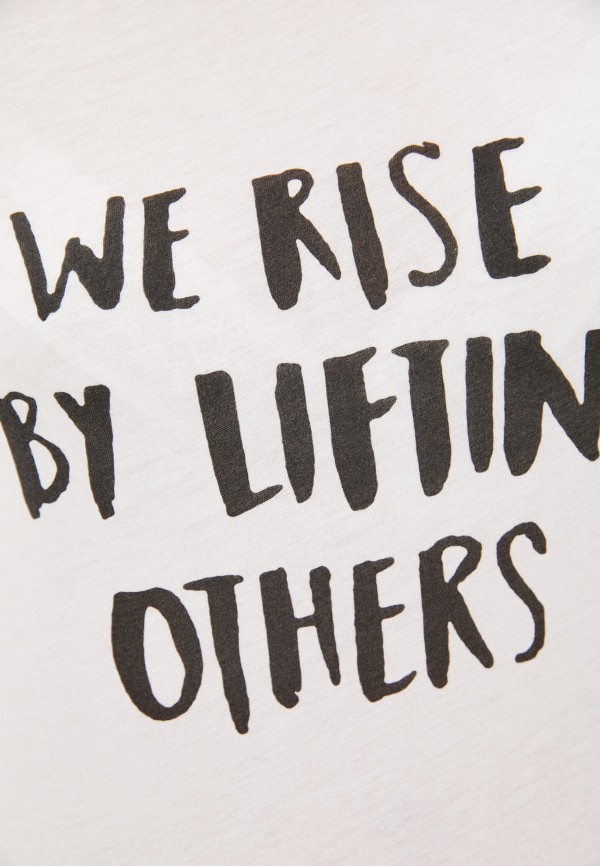 WE RISE
BY LIFTIN
OTHERS